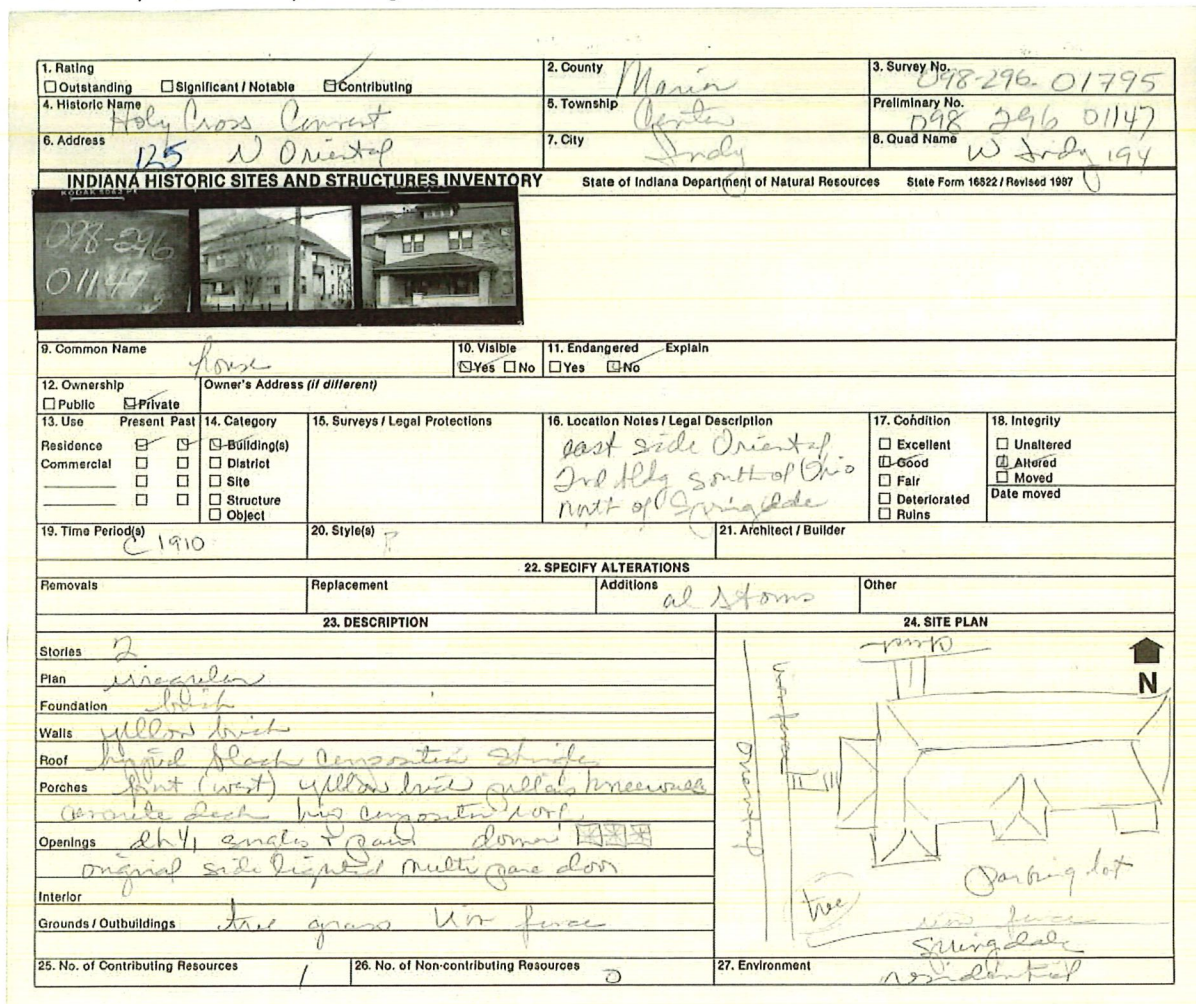 1. Rating
☐ Outstanding ☐ Significant / Notable ☑ Contributing
2. County Marion
3. Survey No. 098-296-01795
4. Historic Name Holy Cross Convent
5. Township Center
Preliminary No. 098 296 01147
6. Address 125 N Oriental
7. City Indy
8. Quad Name W Indy 194
INDIANA HISTORIC SITES AND STRUCTURES INVENTORY State of Indiana Department of Natural Resources State Form 16822 / Revised 1987
KODAK 5063
098-296
01147
9. Common Name house
10. Visible
☑ Yes ☐ No
11. Endangered Explain
☐ Yes ☑ No
12. Ownership
☐ Public ☑ Private
Owner's Address (if different)
13. Use Present Past
Residence ☑ ☑
Commercial ☐ ☐
☐ ☐
☐ ☐
14. Category
☑ Building(s)
☐ District
☐ Site
☐ Structure
☐ Object
15. Surveys / Legal Protections
16. Location Notes / Legal Description
east side Oriental
bldg south of Ohio
north of Springdale
17. Condition
☐ Excellent
☑ Good
☐ Fair
☐ Deteriorated
☐ Ruins
18. Integrity
☐ Unaltered
☑ Altered
☐ Moved
Date moved
19. Time Period(s)
C 1910
20. Style(s)
21. Architect / Builder
22. SPECIFY ALTERATIONS
Removals
Replacement
Additions al storms
Other
23. DESCRIPTION
Stories 2
Plan irregular
Foundation brick
Walls yellow brick
Roof hipped black composition shingles
Porches front (west) yellow brick pillars kneewalls
concrete deck hip composition roof
Openings dh 1/1 singles + pair dormer
original side lighted multi pane door
Interior
Grounds / Outbuildings tree grass iron fence
25. No. of Contributing Resources 1
26. No. of Non-contributing Resources 0
24. SITE PLAN
N
iron fence
Oriental
tree
parking lot
iron fence
Springdale
27. Environment residential